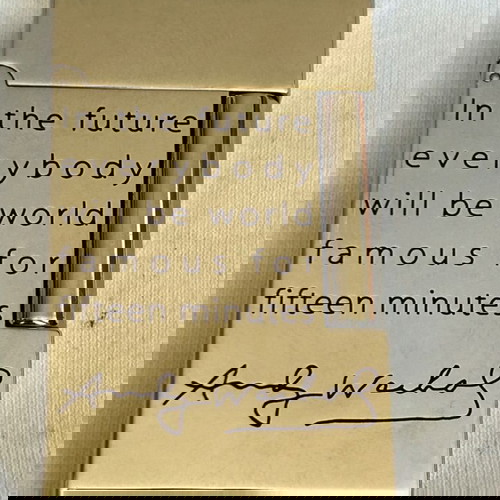 In the future
everybody
will be world
famous for
fifteen minutes
Andy Warhol